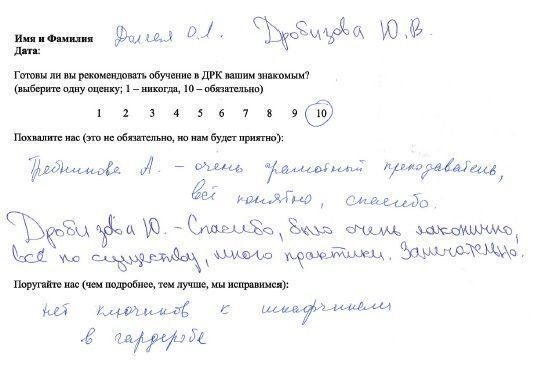 Имя и Фамилия О.Л. Дробизова Ю.В.
Дата:
Готовы ли вы рекомендовать обучение в ДРК вашим знакомым?
(выберите одну оценку; 1 – никогда, 10 – обязательно)
1 2 3 4 5 6 7 8 9 10
Похвалите нас (это не обязательно, но нам будет приятно):
А. – очень грамотный преподаватель,
всё понятно, спасибо.
Дробизова Ю. - Спасибо, было очень лаконично,
всё по существу, много практики. Замечательно.
Поругайте нас (чем подробнее, тем лучше, мы исправимся):
нет ключиков к шкафчикам
в гардеробе